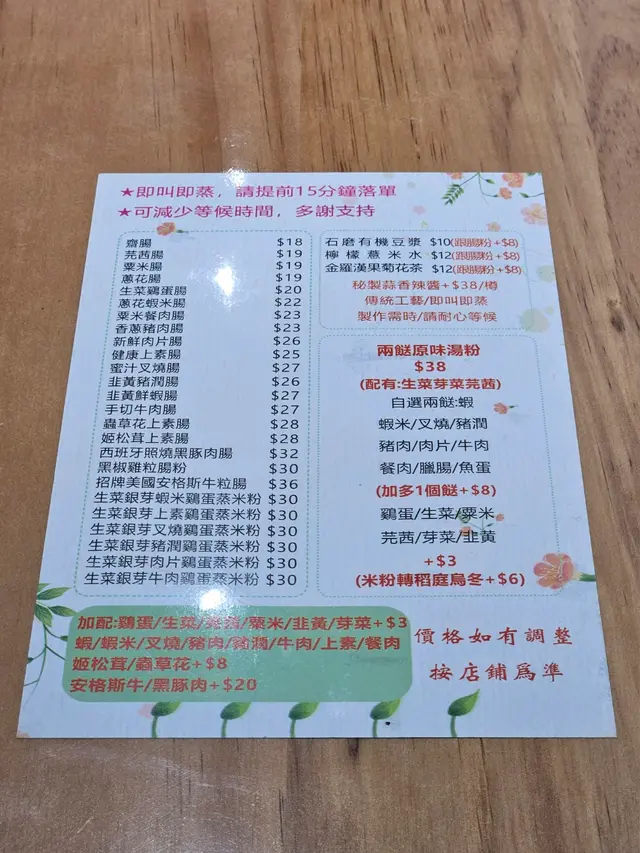 ★即叫即蒸，請提前15分鐘落單
★可減少等候時間，多謝支持
齋腸 $18
芫茜腸 $19
粟米腸 $19
蔥花腸 $19
生菜鷄蛋腸 $20
蔥花蝦米腸 $22
粟米餐肉腸 $23
香蔥豬肉腸 $23
新鮮肉片腸 $26
健康上素腸 $25
蜜汁叉燒腸 $27
韭黃豬潤腸 $26
韭黃鮮蝦腸 $27
手切牛肉腸 $27
蟲草花上素腸 $28
姬松茸上素腸 $28
西班牙照燒黑豚肉腸 $32
黑椒雞粒腸粉 $30
招牌美國安格斯牛粒腸 $36
生菜銀芽蝦米鷄蛋蒸米粉 $30
生菜銀芽上素鷄蛋蒸米粉 $30
生菜銀芽叉燒鷄蛋蒸米粉 $30
生菜銀芽豬潤鷄蛋蒸米粉 $30
生菜銀芽肉片鷄蛋蒸米粉 $30
生菜銀芽牛肉鷄蛋蒸米粉 $30
石磨有機豆漿 $10(跟腸粉+$8)
檸檬薏米水 $12(跟腸粉+$8)
金羅漢果菊花茶 $12(跟腸粉+$8)
秘製蒜香辣醬+$38/樽
傳統工藝/即叫即蒸
製作需時/請耐心等候
兩餸原味湯粉
$38
(配有:生菜芽菜芫茜)
自選兩餸:蝦
蝦米/叉燒/豬潤
豬肉/肉片/牛肉
餐肉/臘腸/魚蛋
(加多1個餸+$8)
鷄蛋/生菜/粟米
芫茜/芽菜/韭黃
+$3
(米粉轉稻庭烏冬+$6)
加配:鷄蛋/生菜/芫茜/粟米/韭黃/芽菜+$3
蝦/蝦米/叉燒/豬肉/豬潤/牛肉/上素/餐肉
姬松茸/蟲草花+$8
安格斯牛/黑豚肉+$20
價格如有調整
按店鋪爲準